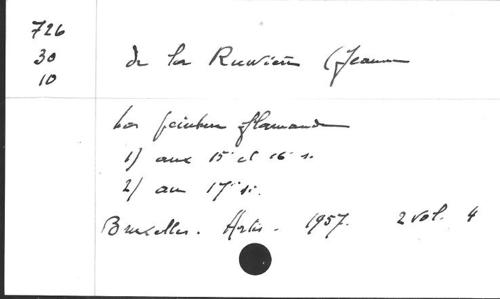 726
30
10
de la Ruwière (Jeanne
La peinture flamande
1) aux 15e et 16e s.
2) au 17e s.
Bruxelles. Artis. 1957. 2 vol. 4